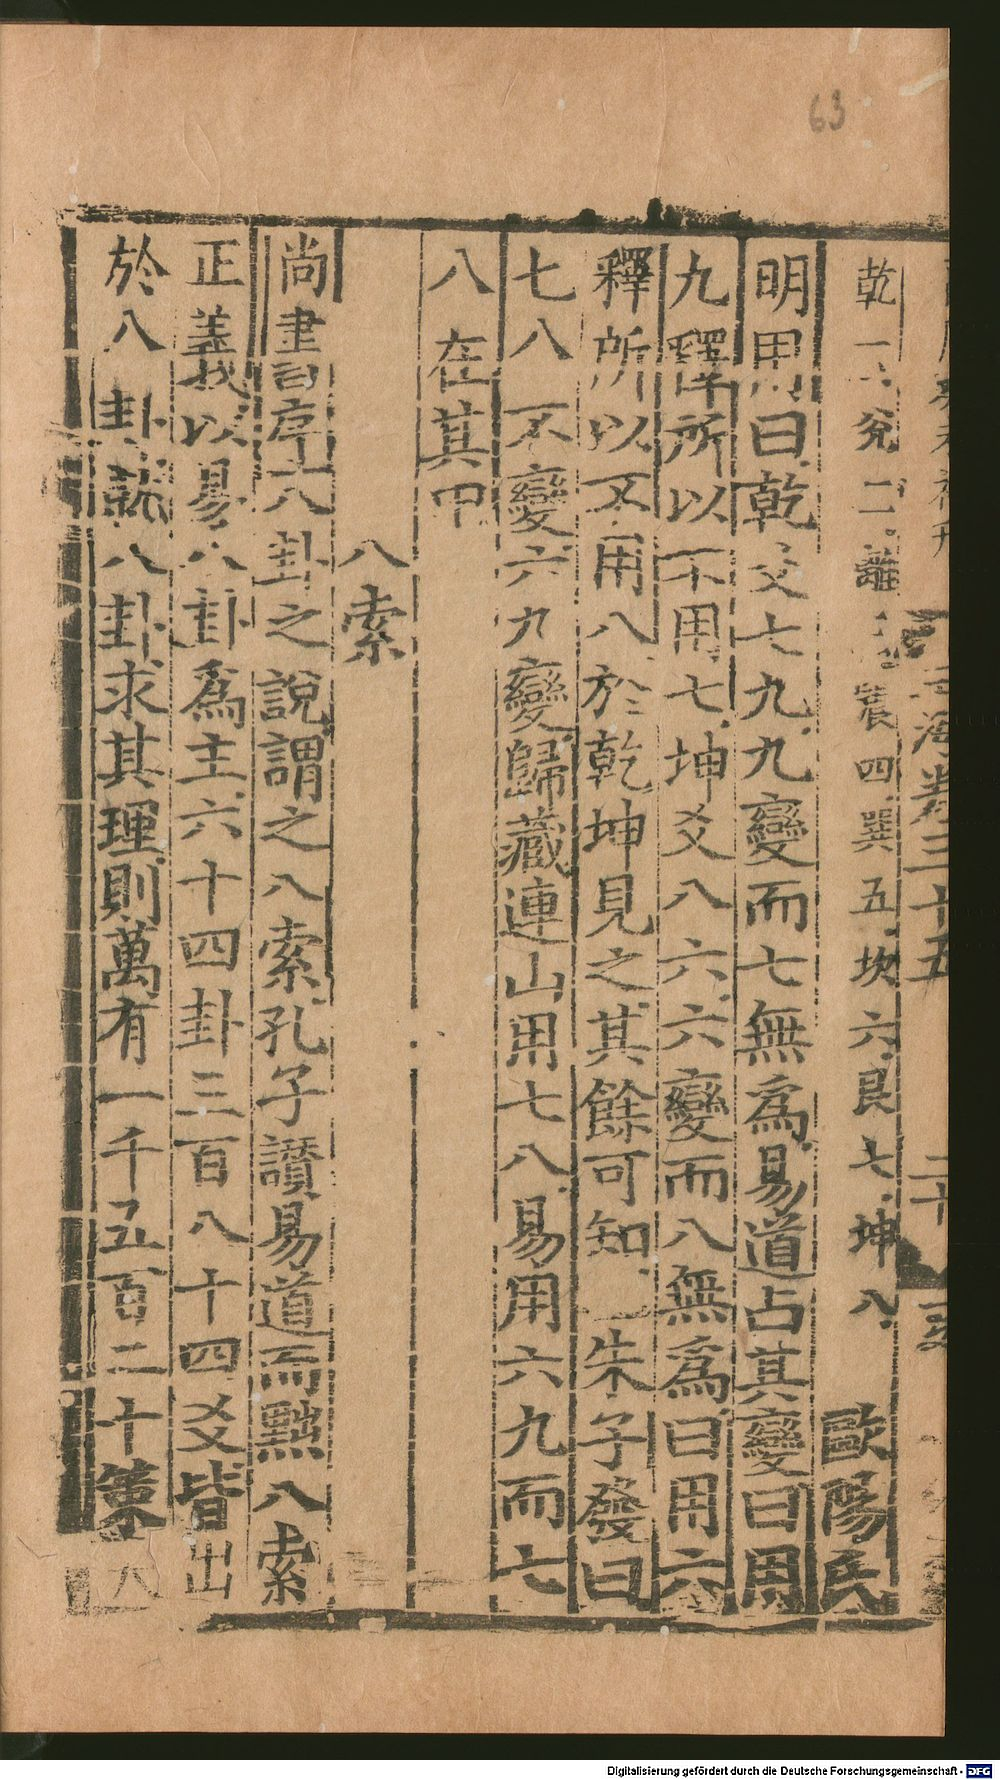 63
海卷三十五 二十
乾一兌二離三震四巽五坎六艮七坤八 歐陽氏
明用曰乾爻七九九變而七無爲易道占其變曰用
九釋所以不用七坤爻八六六變而八無爲曰用六
釋所以不用八於乾坤見之其餘可知 朱子發曰
七八不變六九變歸藏連山用七八易用六九而七
八在其中
八索
尚書序八卦之說謂之八索孔子讃易道而黜八索
正義以易八卦爲主六十四卦三百八十四爻皆出
於八卦就八卦求其理則萬有一千五百二十策
Digitalisierung gefördert durch die Deutsche Forschungsgemeinschaft - DFG